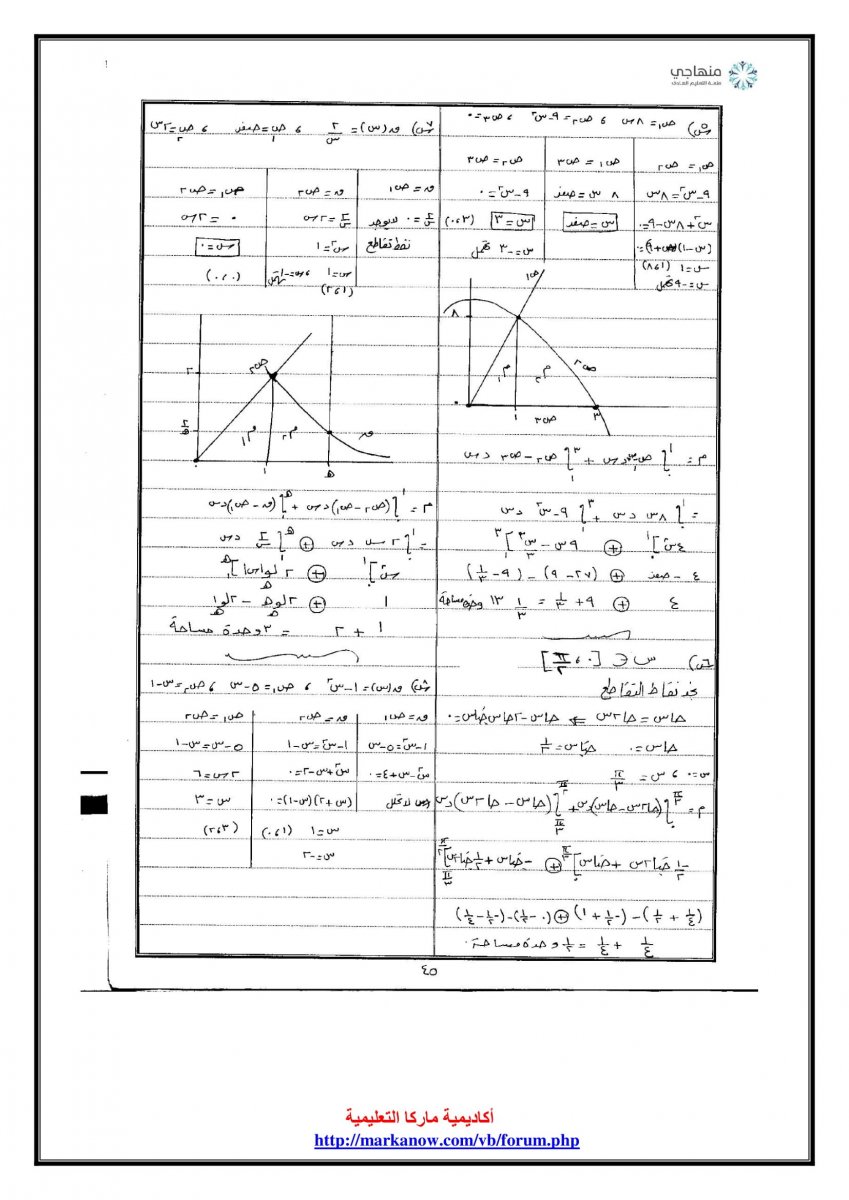 منهاجي
متعة التعليم الهادف
س٥) ص١ = ٨س ، ص٢ = ٩ - س٢ ، ص٣ = ٠
ص١ = ص٢
٩ - س٢ = ٨س
س٢ + ٨س - ٩ = ٠
(س - ١)(س + ٩) = ٠
س = ١ (١،٨)
س = -٩ تهمل
ص١ = ص٣
٨س = صفر
س = صفر
ص٢ = ص٣
٩ - س٢ = ٠
س = ٣ (٣،٠)
س = -٣ تهمل
٨
ص١
ص٢
م١
م٢
٠
١
٣
ص٣
= ٨س دس + ٩ - س٢ دس
٤س٢ + ٩س - س٣/٣
٤ - صفر + (٢٧ - ٩) - (٩ - ١/٣)
٤ + ٩ + ١/٣ = ١٣ ١/٣ وحدة مساحة
س٦) س ∈ [٠، π/٢]
نجد نقاط التقاطع
جاس = جا٢س ⇐ جاس - ٢جاس جتاس = ٠
جاس = ٠ جتاس = ١/٢
س = ٠ ، س = π/٣
م = (جا٢س - جاس)دس + (جاس - جا٢س)دس
-١/٢ جتا٢س + جتاس + -جتاس + ١/٢ جتا٢س
(١/٤ + ١/٢) - (-١/٢ + ١) + (٠ - ١/٢) - (-١/٢ - ١/٤)
١/٤ + ١/٤ = ١/٢ وحدة مساحة.
س٧) ق(س) = ٢/س ، ص١ = صفر ، ص٢ = ٢س
ق = ص١
٢/س = ٠ لا يوجد
نقط تقاطع
ق = ص٢
٢/س = ٢س
س٢ = ١
س = ١ ، س = -١ تهمل
(١،٢)
ص١ = ص٢
٠ = ٢س
س = ٠
(٠،٠)
٢
٢/هـ
ص٢
م١
م٢
ق
١
هـ
م = (ص٢ - ص١)دس + (ق - ص١)دس
= ٢س دس + ٢/س دس
س٢ + ٢ لو|س|
١ + ٢لوهـ - ٢لو١
١ + ٢ = ٣ وحدة مساحة
س٨) ق(س) = ١ - س٢ ، ص١ = ٥ - س ، ص٢ = س - ١
ق = ص١
١ - س٢ = ٥ - س
س٢ - س + ٤ = ٠
لا تحلل
ق = ص٢
١ - س٢ = س - ١
س٢ + س - ٢ = ٠
(س + ٢)(س - ١) = ٠
س = ١ (١،٠)
س = -٢
ص١ = ص٢
٥ - س = س - ١
٢س = ٦
س = ٣
(٣،٢)
٤٥
أكاديمية ماركا التعليمية
http://markanow.com/vb/forum.php